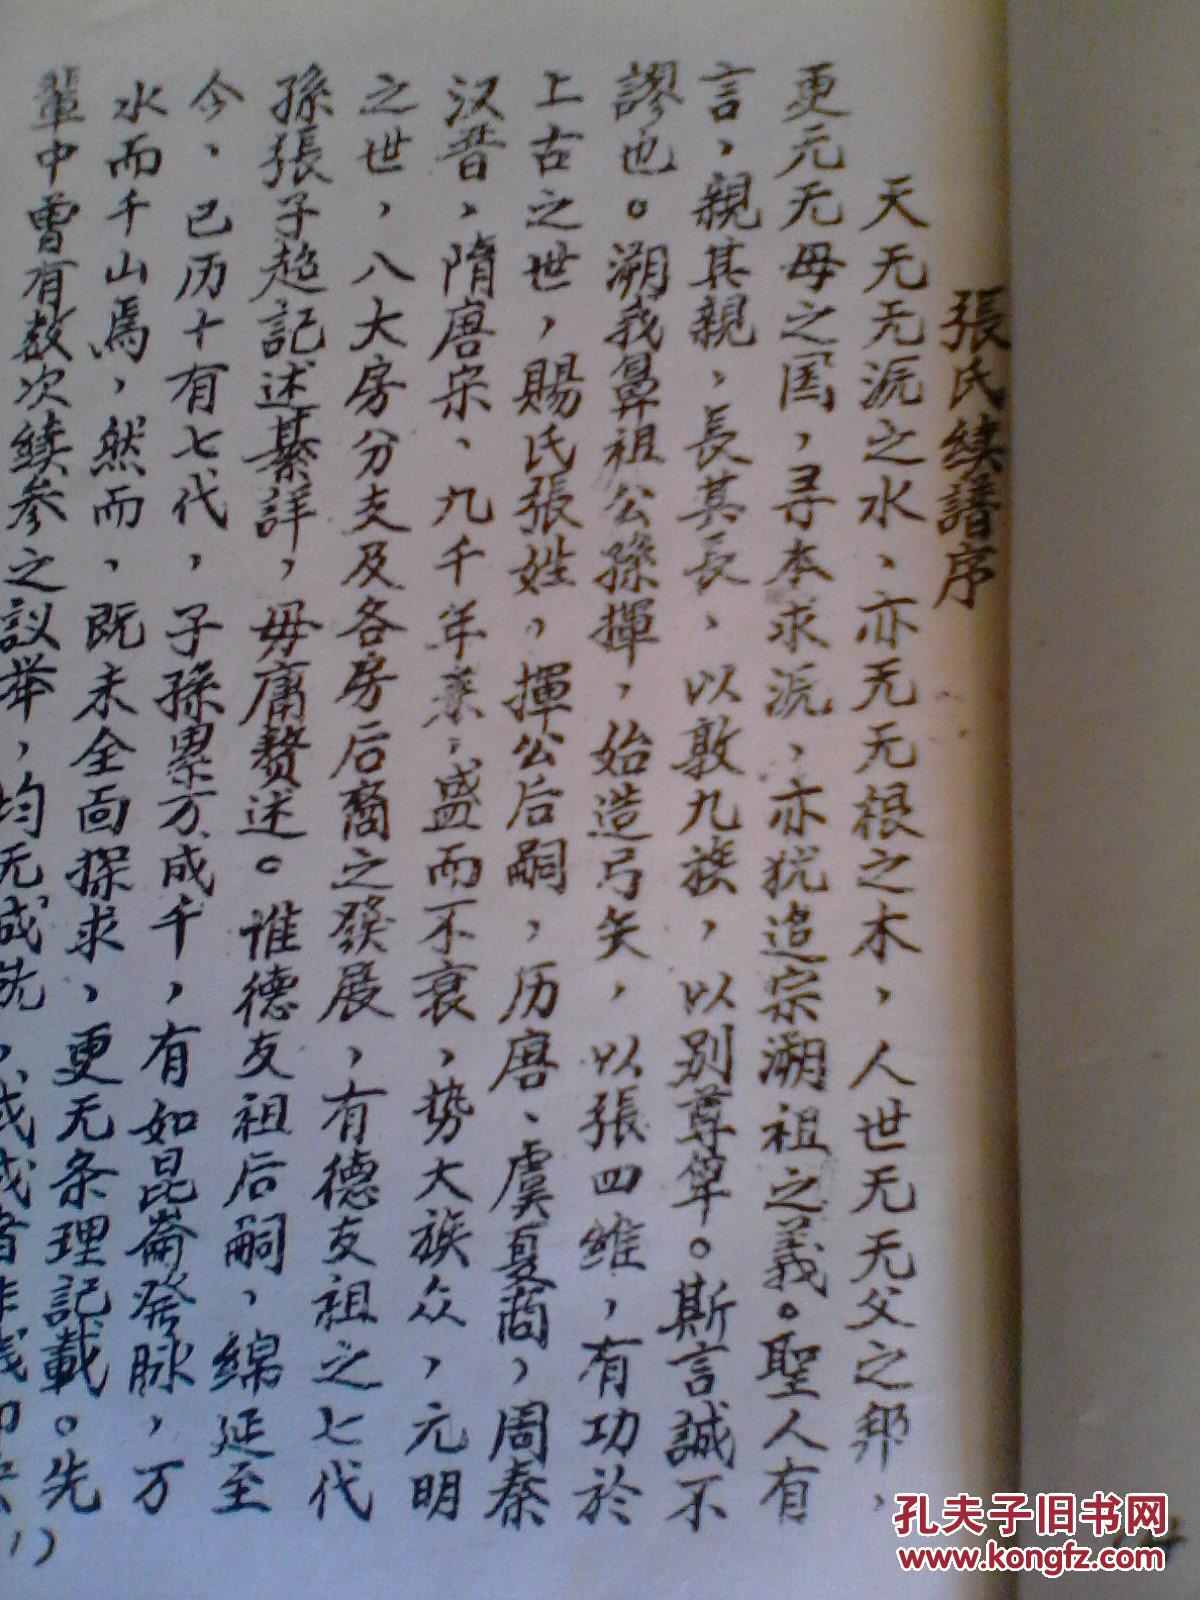 張氏续譜序
天无无源之水、亦无无根之木，人世无无父之邦，
更元无母之国，寻本求源，亦犹追宗溯祖之義。聖人有
言，親其親，長其長、以敦九族，以别尊卑。斯言誠不
謬也。溯我鼻祖公孫揮，始造弓矢，以張四維，有功於
上古之世，賜氏張姓，揮公后嗣，历唐、虞夏商，周秦
汉晋、隋唐宋、九千年来，盛而不衰，势大族众，元明
之世，八大房分支及各房后裔之發展，有德友祖之七代
孫張子趂記述綦詳，毋庸赘述。谁德友祖后嗣、綿延至
今、已历十有七代，子孫累万成千，有如昆崙發脉，万
水而千山焉，然而、既未全面探求、更无条理記載。先
輩中曾有数次续参之议举，均无成
1）
孔夫子旧书网
www.kongfz.com